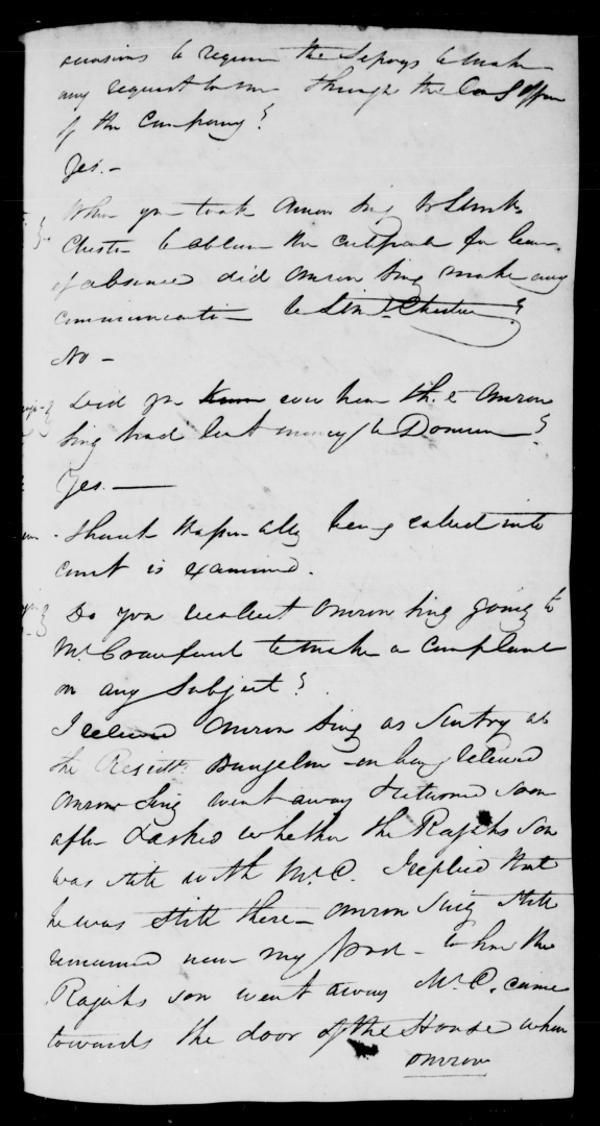 occasions to require the Sepoys to make
any request to me through the Com.g Officer
of the Company?
Yes.-
When you took Omrow Sing to Lieut.
Chester to obtain the certificate for leave
of absence did Omrow Sing make any
communication to Lieut. Chester?
No -
Did you ever hear that Omrow
Sing had lent money to Domun?
Yes. -
Shaik ally being called into
court is examined.
Do you recollect Omrow Sing going to
Mr. Crawfurd to make a complaint
on any subject?
I relieved Omrow Sing as Sentry at
the Residts. Bungelow - on being relieved
Omrow Sing went away & returned soon
after & asked whether the Rajahs son
was still with Mr. C. I replied that
he was still there - Omrow Sing still
remained near my post - when the
Rajahs son went away Mr. C. came
towards the door of the House when
Omrow